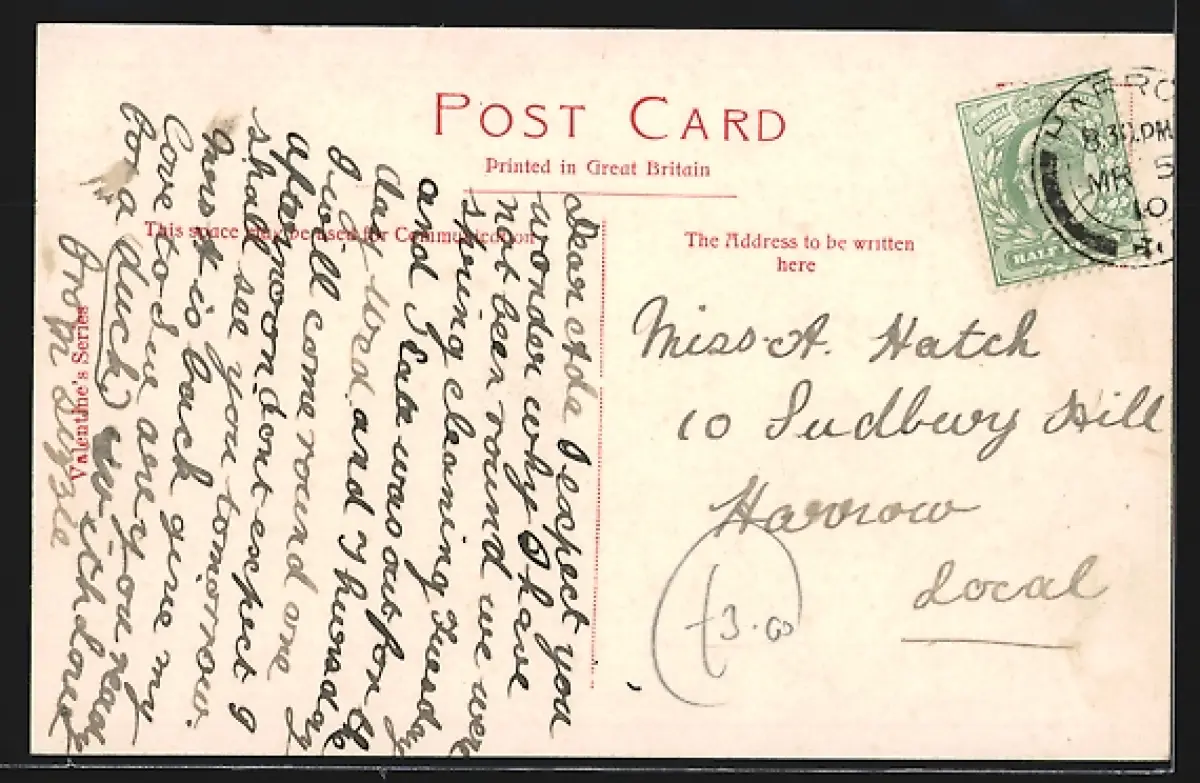 POST CARD
Printed in Great Britain
This space may be used for Communication
The Address to be written
here
Valentine's Series
HARRO
8.30 PM
MR 5
10
HALF
Dear Ada I expect you
wonder why I have
not been round we were
spring cleaning Tuesday
and Kate was out for the
day Wed and Thursday
I will come round one
afternoon dont exspect I
shall see you tomorrow.
Aunt is back give my
Love to Sue are you ready
for a (duck) with love
from Suzzie
Miss. A. Hatch
10 Sudbury Hill
Harrow
Local